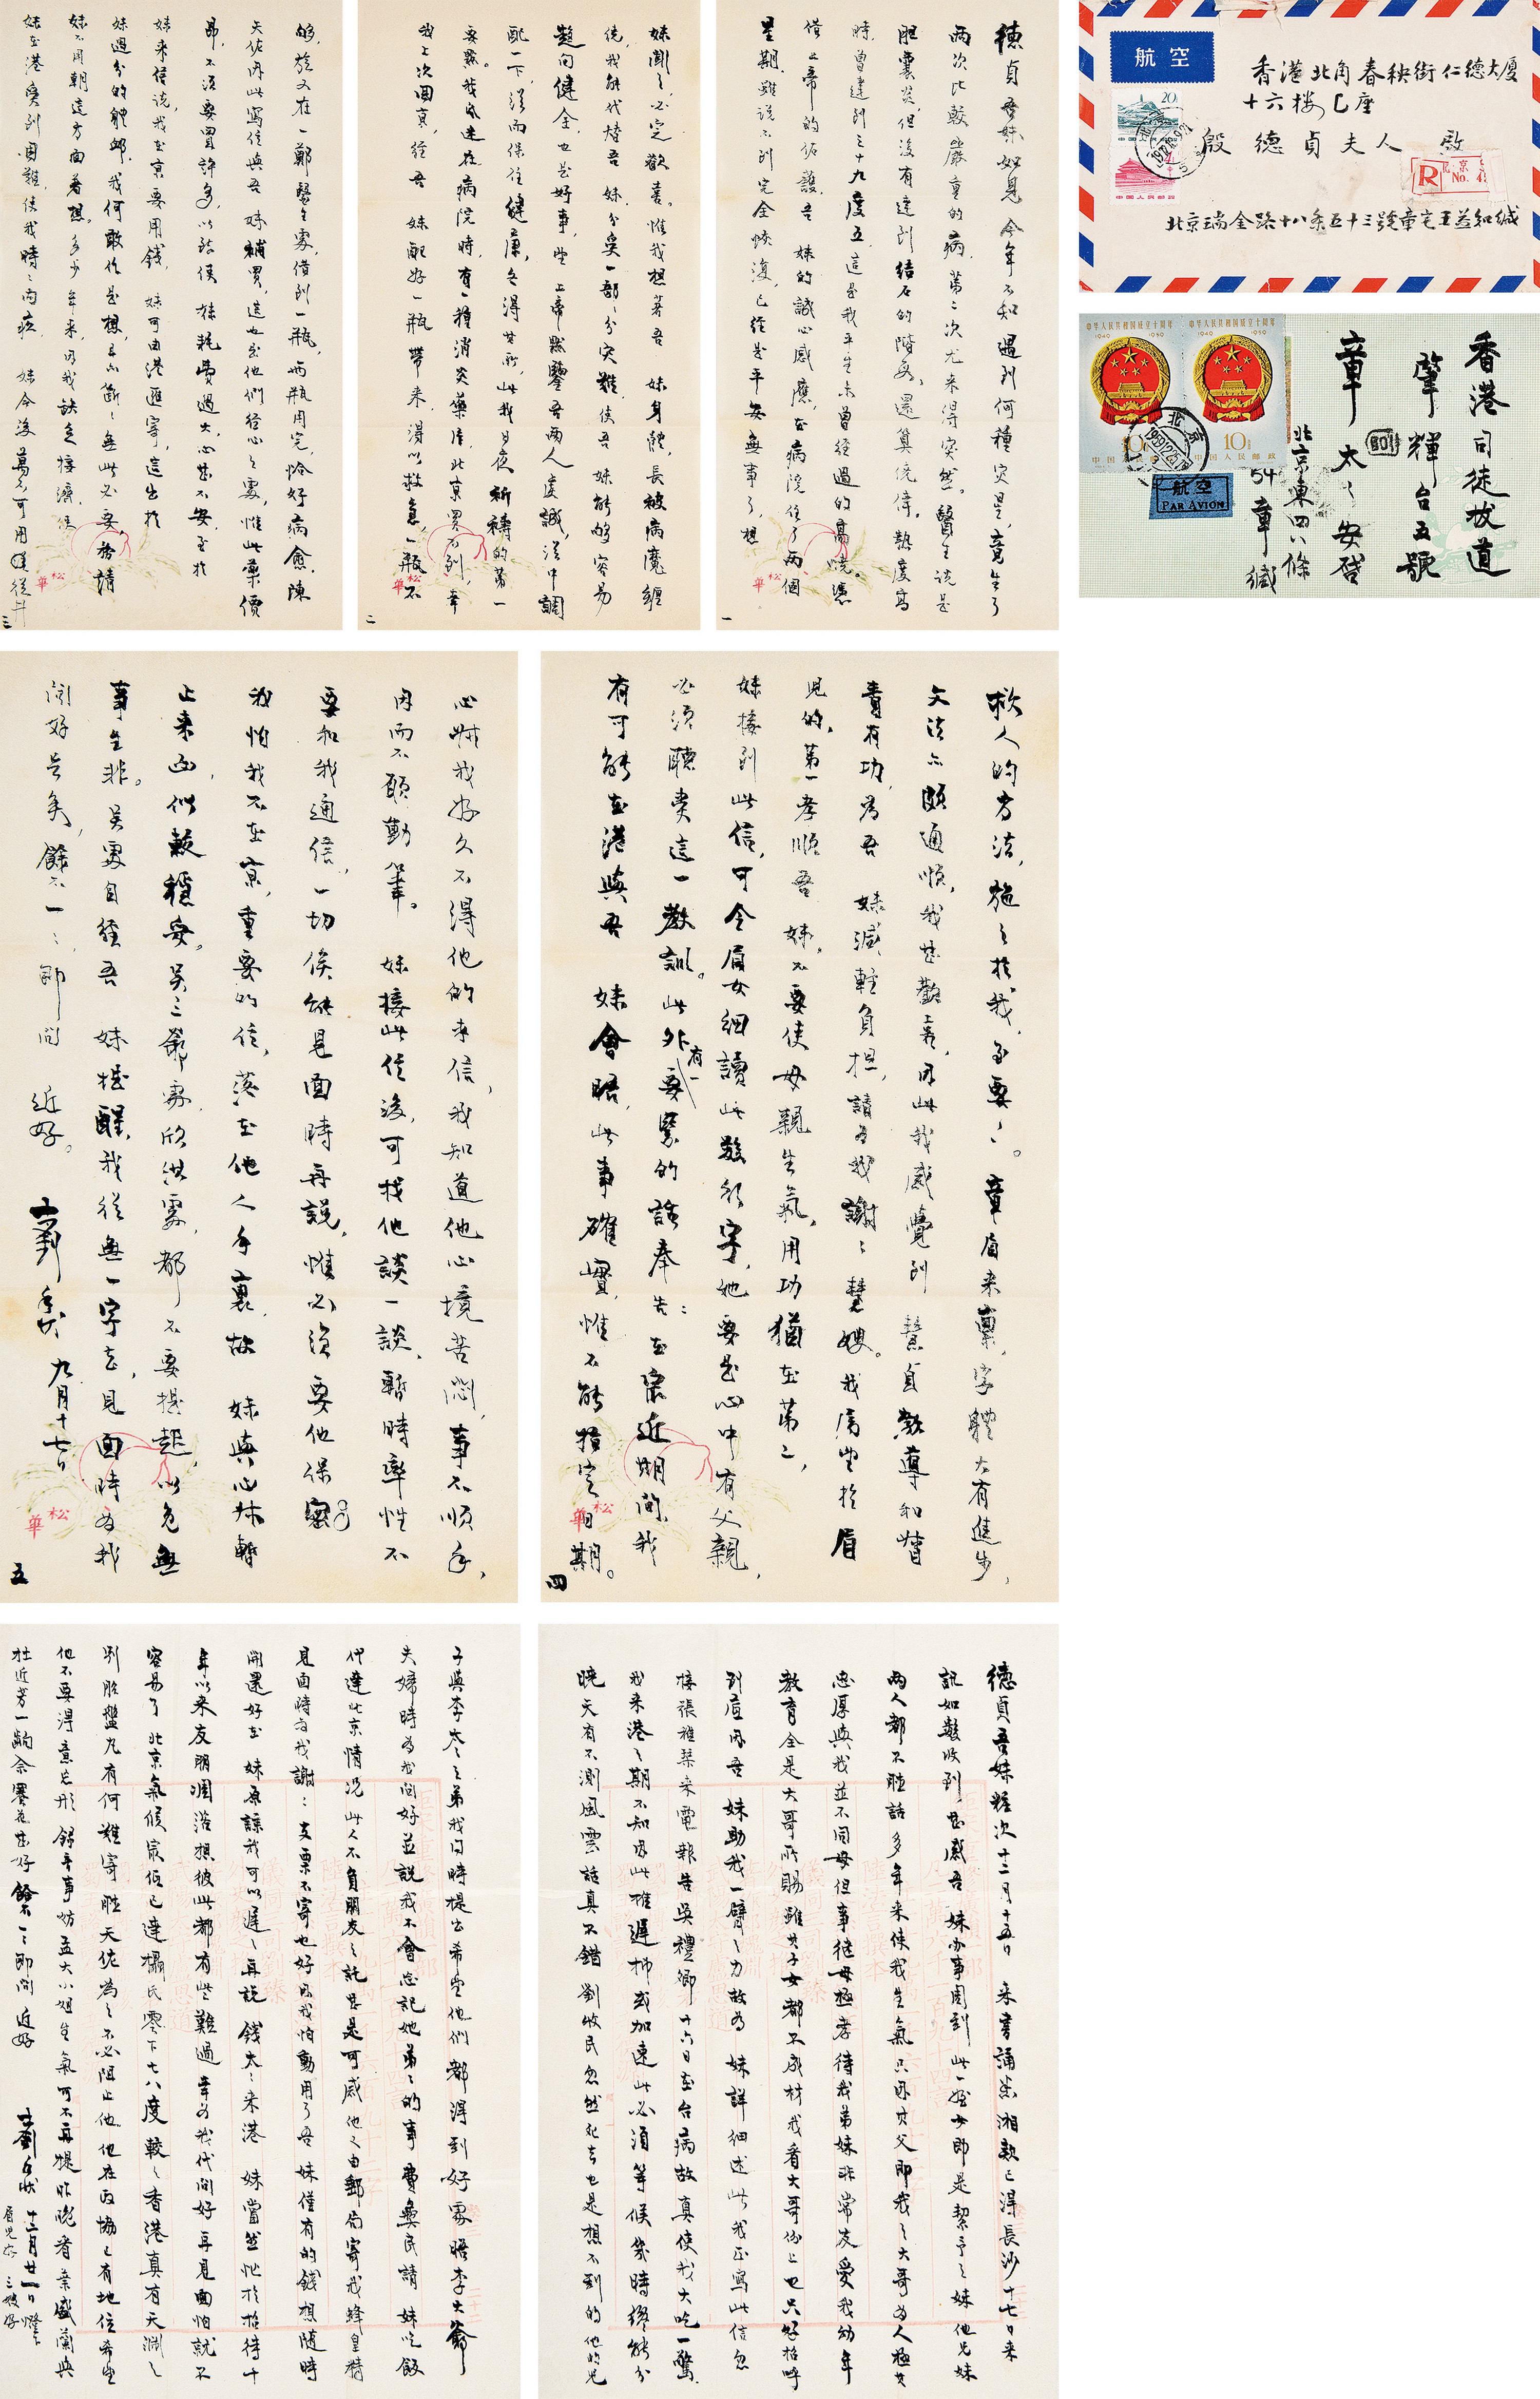 德貞吾妹如見今年不知遇到何種灾星，竟生了
兩次比較嚴重的病，第二次尤来得突然。醫生説是
胆囊炎，但没有達到結石的階段，還算僥倖。熱度高
時，曾達到三十九度五，這是我平生未曾經過的高燒。憑
借上帝的佑護，吾　妹的誠心感應，在病院住了兩個
星期，雖説不到完全恢復，已經是平安無事了，想
一
松華
妹聞之必定歡喜。惟我想著吾　妹身體，長被病魔纏
繞，我能代替吾　妹分矣一部分灾難，使吾　妹能够容易
趨向健全，也是好事，望　上帝默鑒吾兩人虔誠，從中調
配一下，從而保住健康，各得其所，此我日夜祈禱的第一
要點。我感遠在病院時，有一種消炎藥片，北京買不到，幸
我上次回京，經吾　妹配好一瓶帶来，得以救急，一瓶不
二
松華
够，旋又在一鄭醫生處，借到一瓶，兩瓶用完，恰好病愈。陳
天佐因此寫信與吾　妹補買，這也是他們經心之處，惟此藥價
昂，不須要買許多，以致使　妹耗費過大，心甚不安。至於
妹来信説，我在京要用錢，　妹可由港匯寄，這出於
妹過分的體卹，我何敢作是想，亦斷斷無此必要，務請
妹不用朝這方面着想。多少年来，因我缺乏接濟，使
妹在港受到困難，使我時時内疚，　妹今後萬不可用
三
松華
救人的方法，施之於我，至要至要。章眉来稟，字體大有進步，
文法亦頗通順，我甚歡喜，因此我感覺到　慧貞教導和督
責有功，爲吾　妹減輕負担，請爲我謝謝慧嫂。我屬望於眉
兒的，第一孝順吾　妹，不要使母親生氣，用功猶在第二，
妹接到此信，可令眉女細讀此數行字，她要是心中有父親，
必須聽責這一教訓。此外有一要緊的話奉告：在最近期間，我
有可能在港與吾　妹會晤，此事確實，惟不能預定日期。
四
松華
心妹我好久不得他的来信，我知道他心境苦悶，事不順手，
因而不願動筆。　妹接此信後，可找他談一談，暫時率性不
要和我通信，一切俟能見面時再説，惟必須要他保密，
我怕我不在京，重要的信，落在他人手裏，故　妹與心妹暫
止来函，似較穩妥。吳三爺處，欣洪處，都不要提起，以免無
事生非。吳處自經吾　妹提醒，我從無一字去，見面時爲我
問好是矣，餘不一一，即問　近好。
九月十七日
五
松華
香港北角春秧街仁德大厦
十六楼己座
殷德貞夫人　啟
北京瑞金路十八条五十三號章宅王益知緘
航空
20
中国人民邮政
R
No. 4
香港司徒拔道
肇輝台五號
章太太安啓
北京東四八條
54章緘
航空
PAR AVION
中华人民共和国成立十周年
1949 1959
10
中国人民邮政
北京
德貞吾妹粧次十二月十五日　来書誦悉湘款已得長沙十七日来
訊如數收到甚感吾　妹办事周到此一姪女即是絜予之妹他兄妹
兩人都不聽話多年来使我生氣只因其父即我之大哥爲人極其
忠厚與我並不同母但事継母極孝待我弟妹非常友愛我幼年
教育全是大哥所賜雖其子女都不成材我看大哥份上也只好招呼
到底因吾　妹助我一臂之力故爲　妹詳細述此我正寫此信忽
接張雅琴来電報告吳禮卿十六日在台病故真使我大吃一驚
我来港之期不知因此推遲抑或加速此必須等候幾時纔能分
曉天有不測風雲話真不錯劉牧民忽然死去也是想不到的他的兒
子與李太太之弟我同時提出希望他們都得到好處晤李大爺
夫婦時爲我問好並説我不會忘記她弟弟的事費彝民請　妹吃飯
代達北京情況此人不負朋友之託甚是可感他又由郵局寄我蜂皇精
見面時爲我謝謝支票不寄也好因我怕動用了吾　妹僅有的錢想隨時
開還好在　妹原諒我可以遲遲再説錢太太来港　妹當然忙於招待十
年以来友朋凋落想彼此都有些難過幸爲我代問好再見面怕就不
容易了北京氣候最低已達攝氏零下七八度較之香港真有天淵之
別胎盤丸有何難寄聽天佐爲之不必阻止他他在政協已有地位希望
他不要得意忘形錦孝事妨孟大小姐生氣可不再提昨晚看葉盛蘭與
杜近芳一齣佘賽花甚好餘不一一即問　近好
十二月廿一日燈下
眉兒好　三嫂好